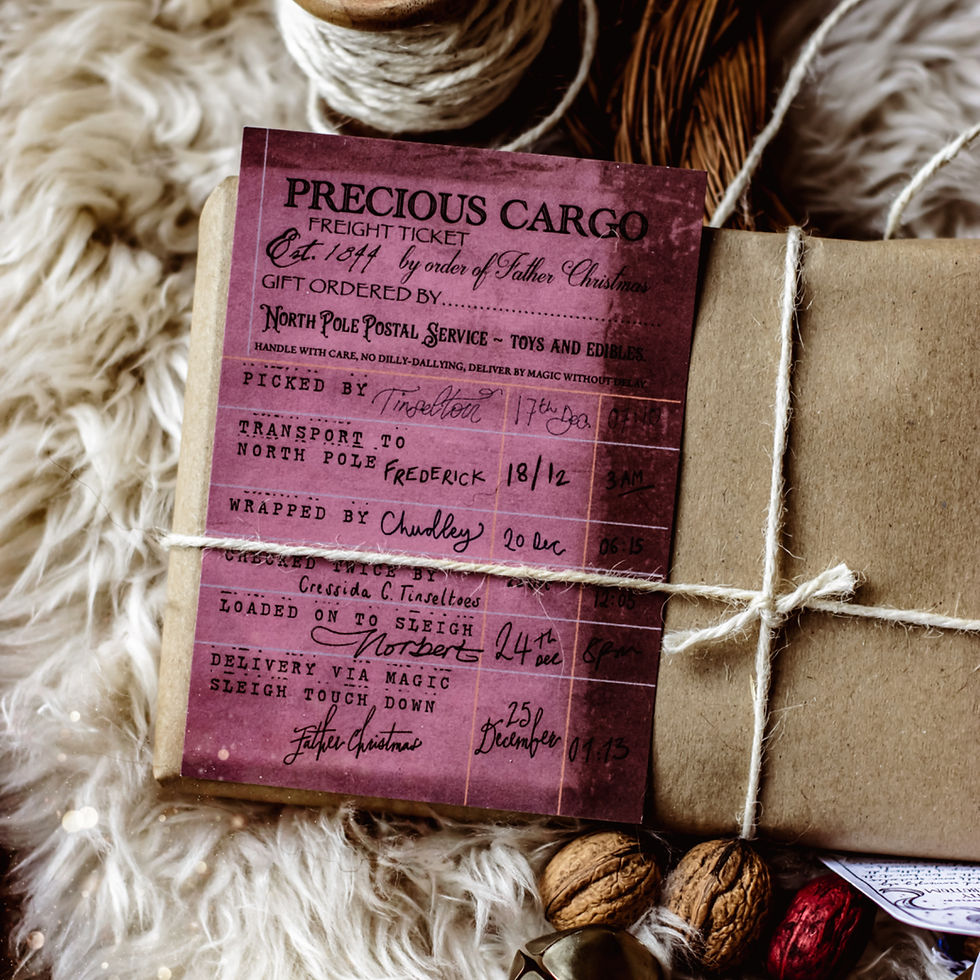 PRECIOUS CARGO
FREIGHT TICKET
Est. 1844 by order of Father Christmas
GIFT ORDERED BY..............................
NORTH POLE POSTAL SERVICE ~ TOYS AND EDIBLES.
HANDLE WITH CARE, NO DILLY-DALLYING, DELIVER BY MAGIC WITHOUT DELAY
PICKED BY Tinselton 17th Dec
TRANSPORT TO
NORTH POLE FREDERICK 18/12 3AM
WRAPPED BY Chudley 20 Dec 06:15
CHECKED TWICE BY
Cressida C. Tinseltoes 12:05
LOADED ON TO SLEIGH
Norbert 24th Dec 8pm
DELIVERY VIA MAGIC
SLEIGH TOUCH DOWN
Father Christmas 25 December